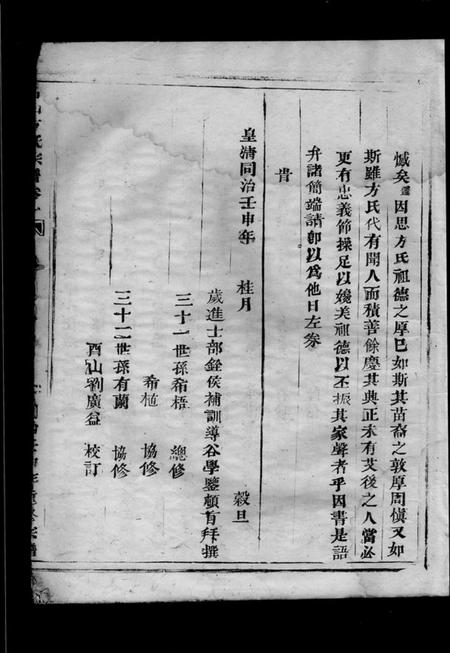 憾矣因思方氏祖德之厚已如斯其苗裔之敦厚周慎又如
斯雖方氏代有聞人而積善餘慶其興正未有艾後之人當必
更有忠義節操足以媲美祖德以丕振其家聲者乎因書是語
弁諸簡端請卽以爲他日左劵
旹
皇清同治壬申年 桂月 穀旦
歲進士部銓侯補訓導谷學鑒頓首拜撰
三十一世孫希梧 總修
希植 協修
三十二世孫有蘭 協修
酉山劉廣益 校訂
方氏宗譜